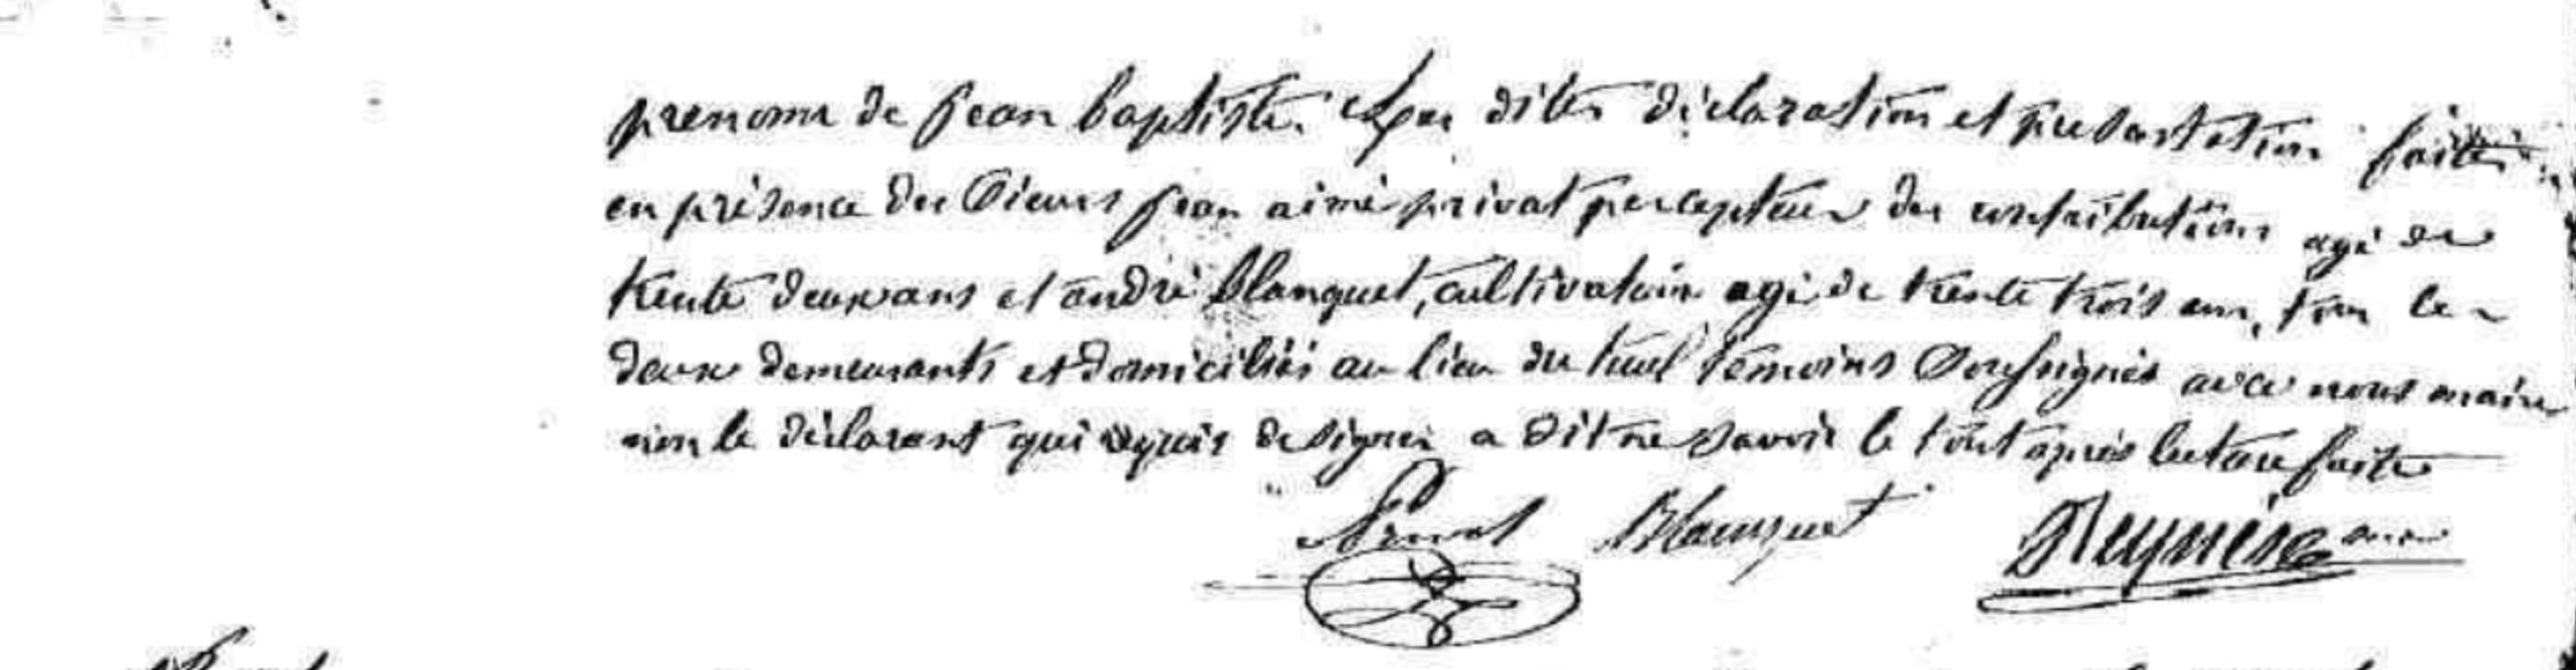 prenoms de jean baptiste. Les dites déclaration et présentation faites
en présence des Sieurs jean aimé privat percepteur des contributions agé de
trente deux ans et andré Blanquet, cultivateur agé de trente trois ans, tous les
deux demeurants et domiciliés au lieu du tuel témoins Soussignés avec nous maire
non le déclarant qui requis de signer a dit ne savoir le tout après lecture faite
Privat Blanquet Reynier maire